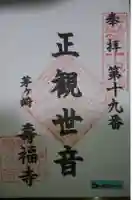 奉拝
第十九番
正観世音
茅ヶ崎
寿福寺